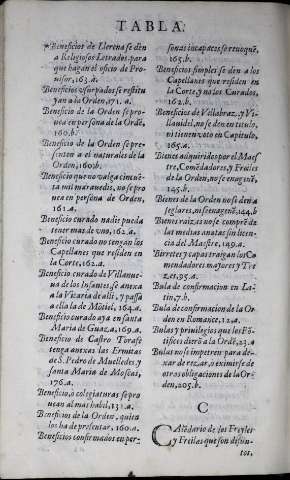 TABLA
Beneficios de Llerena se den
a Religiosos Letrados, para
que hagan el oficio de Pro-
uisor, 163. a.
Beneficios vsurpados se restitu
yan a la Orden, 171. a.
Beneficios de la Orden se pro
uea en persona de la Ordē,
160. b.
Beneficios de la Orden se pre-
senten a el naturales de la
Orden, 160. b.
Beneficio que no valga cincuē-
ta mil marauedis, no se pro
uea en persona de Orden,
161. a.
Beneficio curado nadie pueda
tener mas de vno, 162. a.
Beneficio curado no tengan los
Capellanes que residen en
la Corte, 162. a.
Beneficio curado de Villanue-
ua de los Infantes, se anexe
a la Vicaria de alli, y passe
a ella la de Mōtiel, 164. a.
Beneficio curado aya en santa
Maria de Guaza, 169. a.
Beneficio de Castro Torafe
tenga anexas las Ermitas
de S. Pedro de Muelledes, y
santa Maria de Moscas,
176. a.
Beneficio, o colegiaturas se pro
uean al mas habil, 131. a.
Beneficios de la Orden, quita
los ha de presentar, 160. a.
Beneficios confirmados en per-
sonas incapaces se reuoquē,
165. b.
Beneficios simples se den a los
Capellanes que residen en
la Corte, y no los Curados,
162. b.
Beneficios de Villabraz, y Vi-
llanuidel, no se den en titulo,
ni tienen voto en Capitulo,
165. a.
Bienes adquiridos por el Maes
tre, Comēdadores, y Freiles
de la Orden, no se enagenē,
145. b.
Bienes de la Orden no se dē a
seglares, ni se enagenē, 144. b
Bienes raizes no se comprē de
las medias anatas sin licen-
cia del Maestre, 149. a.
Birretes y capas traigan los Co
mendadores mayores y Tre
zes, 95. a.
Bula de confirmacion en La-
tin, 7. b.
Bula de confirmacion de la Or
den en Romance, 12. a.
Bulas y priuilegios que los Pō-
tifices dierō a la Ordē, 23. a
Bulas no se impetren para de-
xar de rezar, o eximirse de
otras obligaciones de la Or-
den, 205. b.
C
CAlēdario de los Freyles
y Freilas que son difun-
tos,